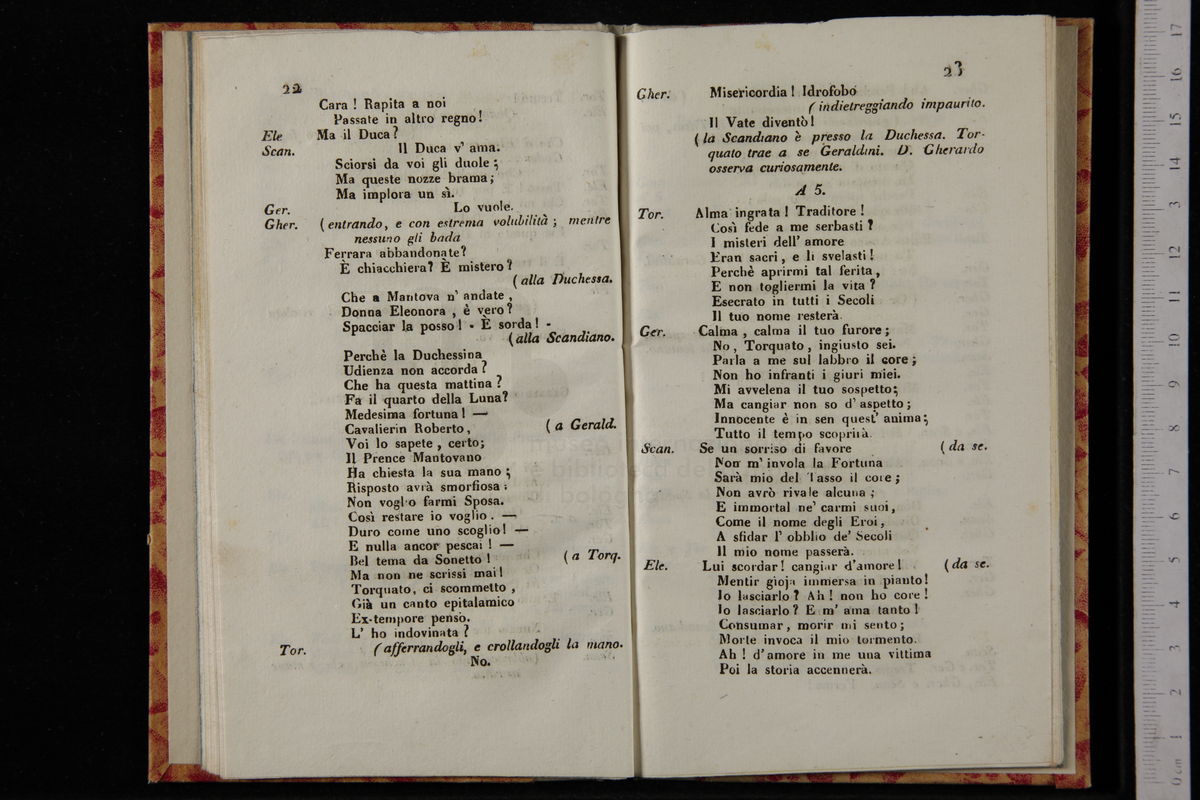 22
Cara ! Rapita a noi
Passate in altro regno!
Ele Ma il Duca?
Scan. Il Duca v' ama.
Sciorsi da voi gli duole;
Ma queste nozze brama;
Ma implora un sì.
Ger. Lo vuole.
Gher. (entrando, e con estrema volubilità ; mentre
nessuno gli bada
Ferrara abbandonate?
È chiacchiera? È mistero?
(alla Duchessa.
Che a Mantova n' andate,
Donna Eleonora, è vero?
Spacciar la posso! - È sorda! -
(alla Scandiano.
Perchè la Duchessina
Udienza non accorda?
Che ha questa mattina?
Fa il quarto della Luna?
Medesima fortuna! —
Cavalierin Roberto, (a Gerald.
Voi lo sapete, certo;
Il Prence Mantovano
Ha chiesta la sua mano;
Risposto avrà smorfiosa:
Non voglio farmi Sposa.
Così restare io voglio. —
Duro come uno scoglio! —
E nulla ancor pescai! —
Bel tema da Sonetto! (a Torq.
Ma non ne scrissi mai!
Torquato, ci scommetto,
Già un canto epitalamico
Ex-tempore pensò.
L' ho indovinata?
Tor. (afferrandogli, e crollandogli la mano.
No.
23
Gher. Misericordia! Idrofobo
(indietreggiando impaurito.
Il Vate diventò!
(la Scandiano è presso la Duchessa. Tor-
quato trae a se Geraldini. D. Gherardo
osserva curiosamente.
A 5.
Tor. Alma ingrata! Traditore!
Così fede a me serbasti?
I misteri dell' amore
Eran sacri, e li svelasti!
Perchè aprirmi tal ferita,
E non togliermi la vita?
Esecrato in tutti i Secoli
Il tuo nome resterà.
Ger. Calma, calma il tuo furore;
No, Torquato, ingiusto sei.
Parla a me sul labbro il core;
Non ho infranti i giuri miei.
Mi avvelena il tuo sospetto;
Ma cangiar non so d' aspetto;
Innocente è in sen quest' anima;
Tutto il tempo scoprirà.
Scan. Se un sorriso di favore (da se.
Non m' invola la Fortuna
Sarà mio del Tasso il core;
Non avrò rivale alcuna;
E immortal ne' carmi suoi,
Come il nome degli Eroi,
A sfidar l' obblio de' Secoli
Il mio nome passerà.
Ele. Lui scordar! cangiar d'amore! (da se.
Mentir gioja immersa in pianto!
Io lasciarlo? Ah! non ho core!
Io lasciarlo? E m' ama tanto!
Consumar, morir mi sento;
Morte invoca il mio tormento.
Ah! d' amore in me una vittima
Poi la storia accennerà.